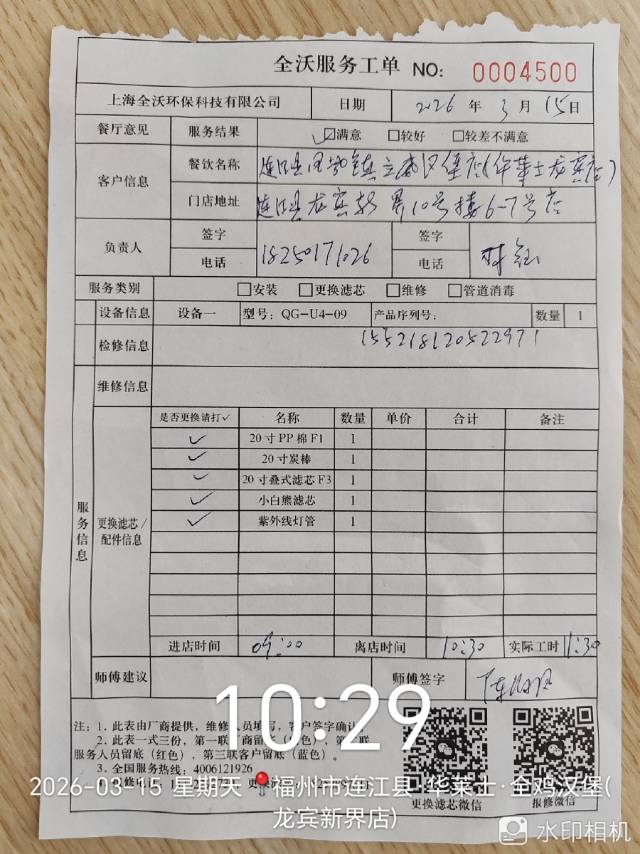 全沃服务工单 NO: 0004500
上海全沃环保科技有限公司 日期 2026 年 3 月 15 日
餐厅意见 服务结果 ☑满意 □较好 □较差不满意
客户信息 餐饮名称 连江县 镇 汉堡店(华莱士龙宾店)
门店地址 连江县龙宾新界10号楼6-7号店
负责人 签字 签字
电话 18250171026 电话 林
服务类别 □安装 □更换滤芯 □维修 □管道消毒
设备信息 设备一 型号: QG-U4-09 产品序列号: 数量 1
检修信息 155218120522971
维修信息
服务信息
更换滤芯/配件信息
是否更换请打✓ 名称 数量 单价 合计 备注
✓ 20寸PP棉F1 1
✓ 20寸炭棒 1
✓ 20寸叠式滤芯F3 1
✓ 小白熊滤芯 1
✓ 紫外线灯管 1
进店时间 09:00 离店时间 10:30 实际工时 1:30
师傅建议 师傅签字 陈
10:29
注: 1. 此表由厂商提供, 维修人员填写, 客户签字确认
2. 此表一式三份, 第一联厂商留底(白色), 第二联
服务人员留底(红色), 第三联客户留底(蓝色)。
3. 全国服务热线: 4006121926
更换滤芯微信 报修微信
2026-03-15 星期天 福州市连江县·华莱士·全鸡汉堡(
龙宾新界店)
水印相机